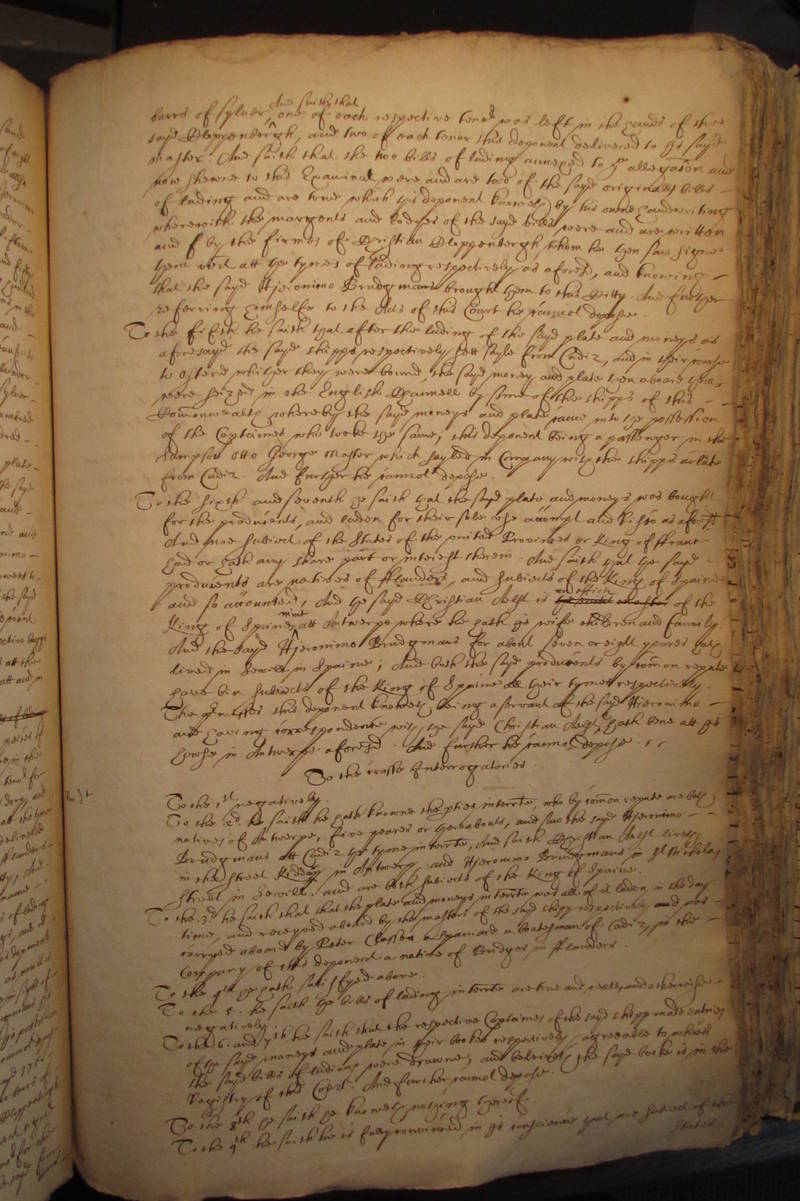 barrs of sylver And saith that one of each respective tenor was left in the hands of the
sayd Cloppenbergh, and two of each tenor this deponent delivered to his sayd
master. And saith that the two bills of lading annexed to the allegation and
now shewne to this Examinat were and are two of the sayd originall bills
of lading and are true which this deponent knoweth by his owne handwriting
wherewith the margents and bodyes of the sayd bills were and are written
and by the firmes of Christian Cloppenbergh whom he then saw signe
them att the tymes of lading respectively as aforesd, and knowing
that the sayd Hieronimo Brudgmans brought them to this Citty. And further
referring himselfe to the Acts of this Court he cannot depose.
To the fifth he saith that after the lading of the sayd plate and moneys as
aforesayd the sayd shipps respectively sett sayle from Cadiz, and in their course
to Ostend whither they were bound, the sayd money and plate then aboard them
were seized in the English Channell by some of the shipps of this
Commonwealth whereby the sayd moneys and plate came into the possession
of the Captaines who tooke the same; this deponent being a passenger in the
Sampson Otto George Master which sayled in Company with the shipps arlate
from Cadiz. And further he cannot depose.
To the sixth and seventh he saith that the sayd plate and moneys was bought
for the producents, and laden for their sole accompt and risgo as aforesd
And noe subiect of the States of the united Provinces or King of ffrance
had or hath any share part or interest therein. And saith that the sayd
producents are natives of fflanders, and subiects of the King of Spaine
and so accounted, And the sayd Christian is an officer of the
King of Spaines mint att Antwerpe where he hath his wife children and family
And the sayd Hieronimo Brudgmans for about seven or eight yeares hath
lived in Sevill in Spaine; And both the sayd producents by common repute
have bin subiects of the King of Spaine all their tymes respectively.
The premisses this deponent knoweth being a servant of the sayd Hieronimo
and having correspondence with the sayd Christian hath bene att his
house in Antwerpe aforesd. And further he cannot depose.
To the crosse Interrogatories.
To the 1st negatively.
To the 2d he saith he hath knowne the parties interrate, who by common repute are both
natives of Antwerpe, five yeares or thereabouts, and saw the sayd Hieronimo
Brudgmans att Cadiz the tyme interrate, And saith Christian liveth
in the street in Antwerp and Hieronimo Brudgmans in St Nicholas
Street in Sevill and are both subiects of the King of Spaine.
To the 3d he saith that that the plate and moneys interrate was all of it laden in the day
time, and receyved aboord by the masters of the said shipps respectively and was
carryed aboard by Peter Classen a Spaniard a boatesman of Cadiz, in the
Company of this deponent a native of Bridges in fflanders.
To the 4th he hath satisfyed above.
To the 5. he saith the bills of lading interrate are true and reall, and otherwise
negatively.
To the 6. and 7th he saith that the respective Captaines of the sayd shipps made entries
of the sayd moneys and plate in their bookes respectively, agreeable to which
the sayd bills of lading were drawne, and beleiveth the sayd booke is in the
Registry of this Court. And further cannot depose.
To the 8th he saith he knoweth nothing thereof.
To the 9th he saith hee is fully convinced in his conscience that noe subiect of the
States